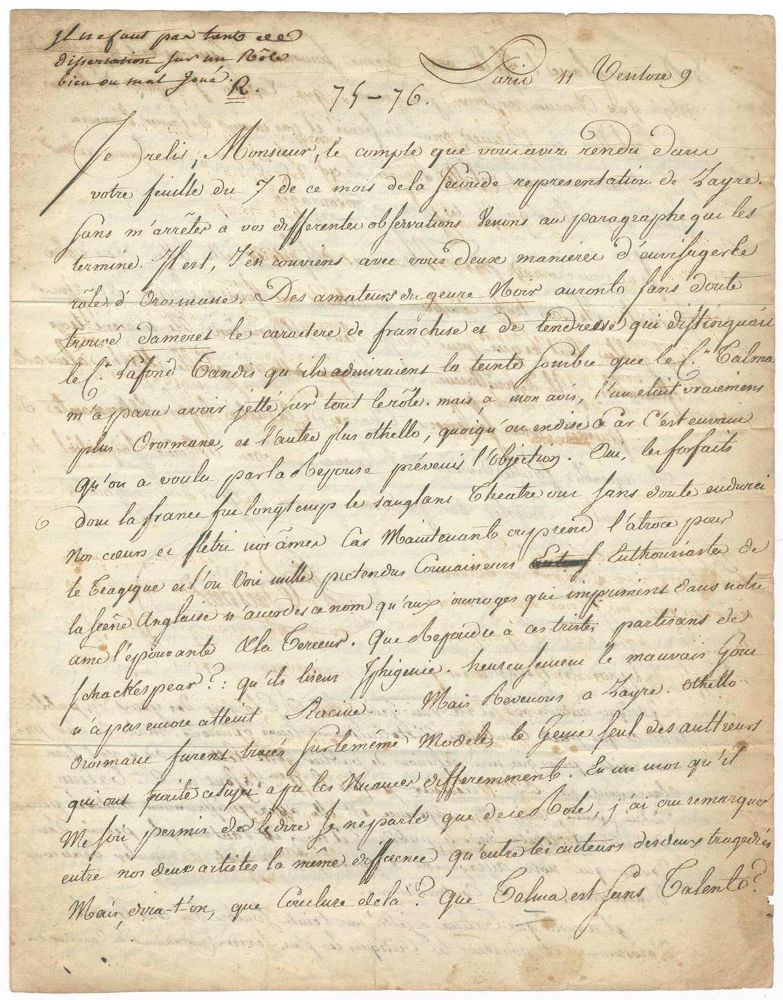 Il ne faut pas tant de
dissertation sur un Rôle
bien ou mal Joué.
R.
Paris 11 Ventose 9
75-76.
Je Relis, Monsieur, le compte que vous avez rendu dans
votre feuille du 7 de ce mois de la seconde representation de Zayre.
sans m'arrêter a vos differentes observations Venons au paragraphe qui les
termine. Il est, J'en conviens avec vous deux manieres d'envisager le
rôle d'Orosmane. Des amateurs du genre Noir auront sans doute
trouvé dameret le caractere de franchise et de tendresse qui distinguait
le C.en Lafond Tandis qu'ils admiraient la teinte sombre que le C.en Talma
m'a paru avoir jetté sur tout le rôle. mais a mon avis, l'un etait vraiement
plus Orosmane, et l'autre plus othello, quoiqu'on en dise Car C'est en vain
qu'on a voulu par la Reponse prévenir l'Objection. Oui, les forfaits
dont la france fut longtemps le sanglant Theatre ont sans doute endurci
nos cœurs et flétri nos âmes Car Maintenant on prend l'atroce pour
le tragique et l'on Voit mille pretendus Connaisseurs Enthousiastes de
la scêne Anglaise n'accorder ce nom qu'aux ouvrages qui impriment dans notre
ame l'épouvante & la Terreur. Que Repondre à ces tristes partisans de
schackespear? : qu'ils lisent Iphigenie. heureusement le mauvais Goût
n'a pas encore atteint Racine.... Mais Revenons a Zayre. Othello
Orosmane furent tracés sur le même Modele, le Genie seul des auttheurs
qui ont traité ce sujet a pu les Nuancer differemment. En un mot qu'il
Me soit permis de le dire Je ne parle que de ce Role, j'ai cru remarquer
entre nos deux artistes la même difference qu'entre les auteurs des deux tragedies
Mais, dira-t'on, que Conclure de la? que Talma est sans Talent?